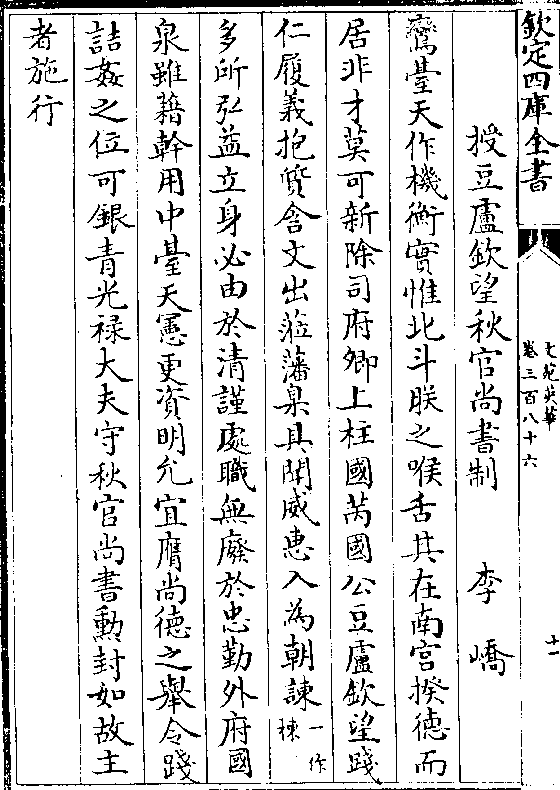 欽定四庫全書
文苑英華
卷三百八十六
十一
授豆盧欽望秋官尚書制 李嶠
鸞臺天作機衡實惟北斗朕之喉舌其在南宫揆德而
居非才莫可新除司府卿上柱國芮國公豆盧欽望踐
仁履義抱質含文出蒞藩臬具聞威惠入為朝諫一作棟
多所弘益立身必由於清謹處職無廢於忠勤外府國
泉雖藉幹用中臺天憲更資明允宜膺尚德之舉令踐
詰姦之位可銀青光禄大夫守秋官尚書勳封如故主
者施行